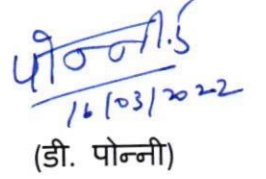 पोन्नी.डी
16/03/2022
(डी. पोन्नी)